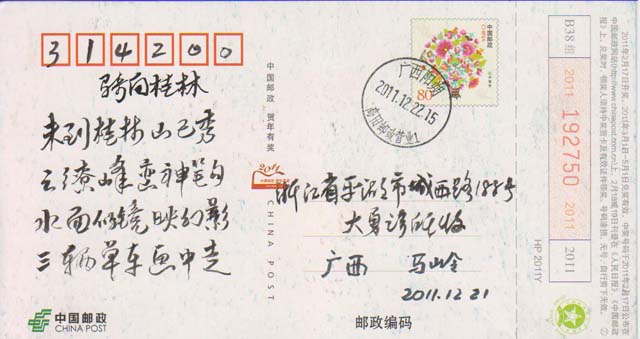 314200
骑向桂林
未到桂林山已秀
云绕峰峦神笔勾
水面似镜映幻影
三辆单车画中走
中国邮政
CHINA POST
中国邮政 贺年有奖
CHINA POST
2011
中国邮政
80分
广西阳朔
2011.12.22.15
浙江省平湖市城西路188号
大勇诊所收
广西 马山岭
2011.12.21
邮政编码
HP 2011Y
B38 组
2011
192750
2011
2011